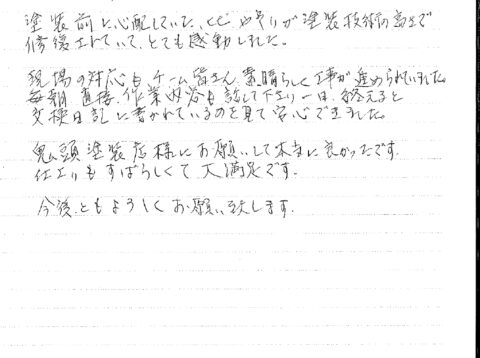 塗装前に心配していた、ヒビやサリが塗装技術の高さで
修復されていて、とても感動しました。
現場の対応も、チーム皆さん素晴らしく工事が進められていました。
毎朝直接、作業内容も話して下さり一日、終えると
交換日記に書かれているのを見て安心できました。
鬼頭塗装店様にお願いして本当に良かったです。
仕上りもすばらしくて大満足です。
今後ともよろしくお願い致します。